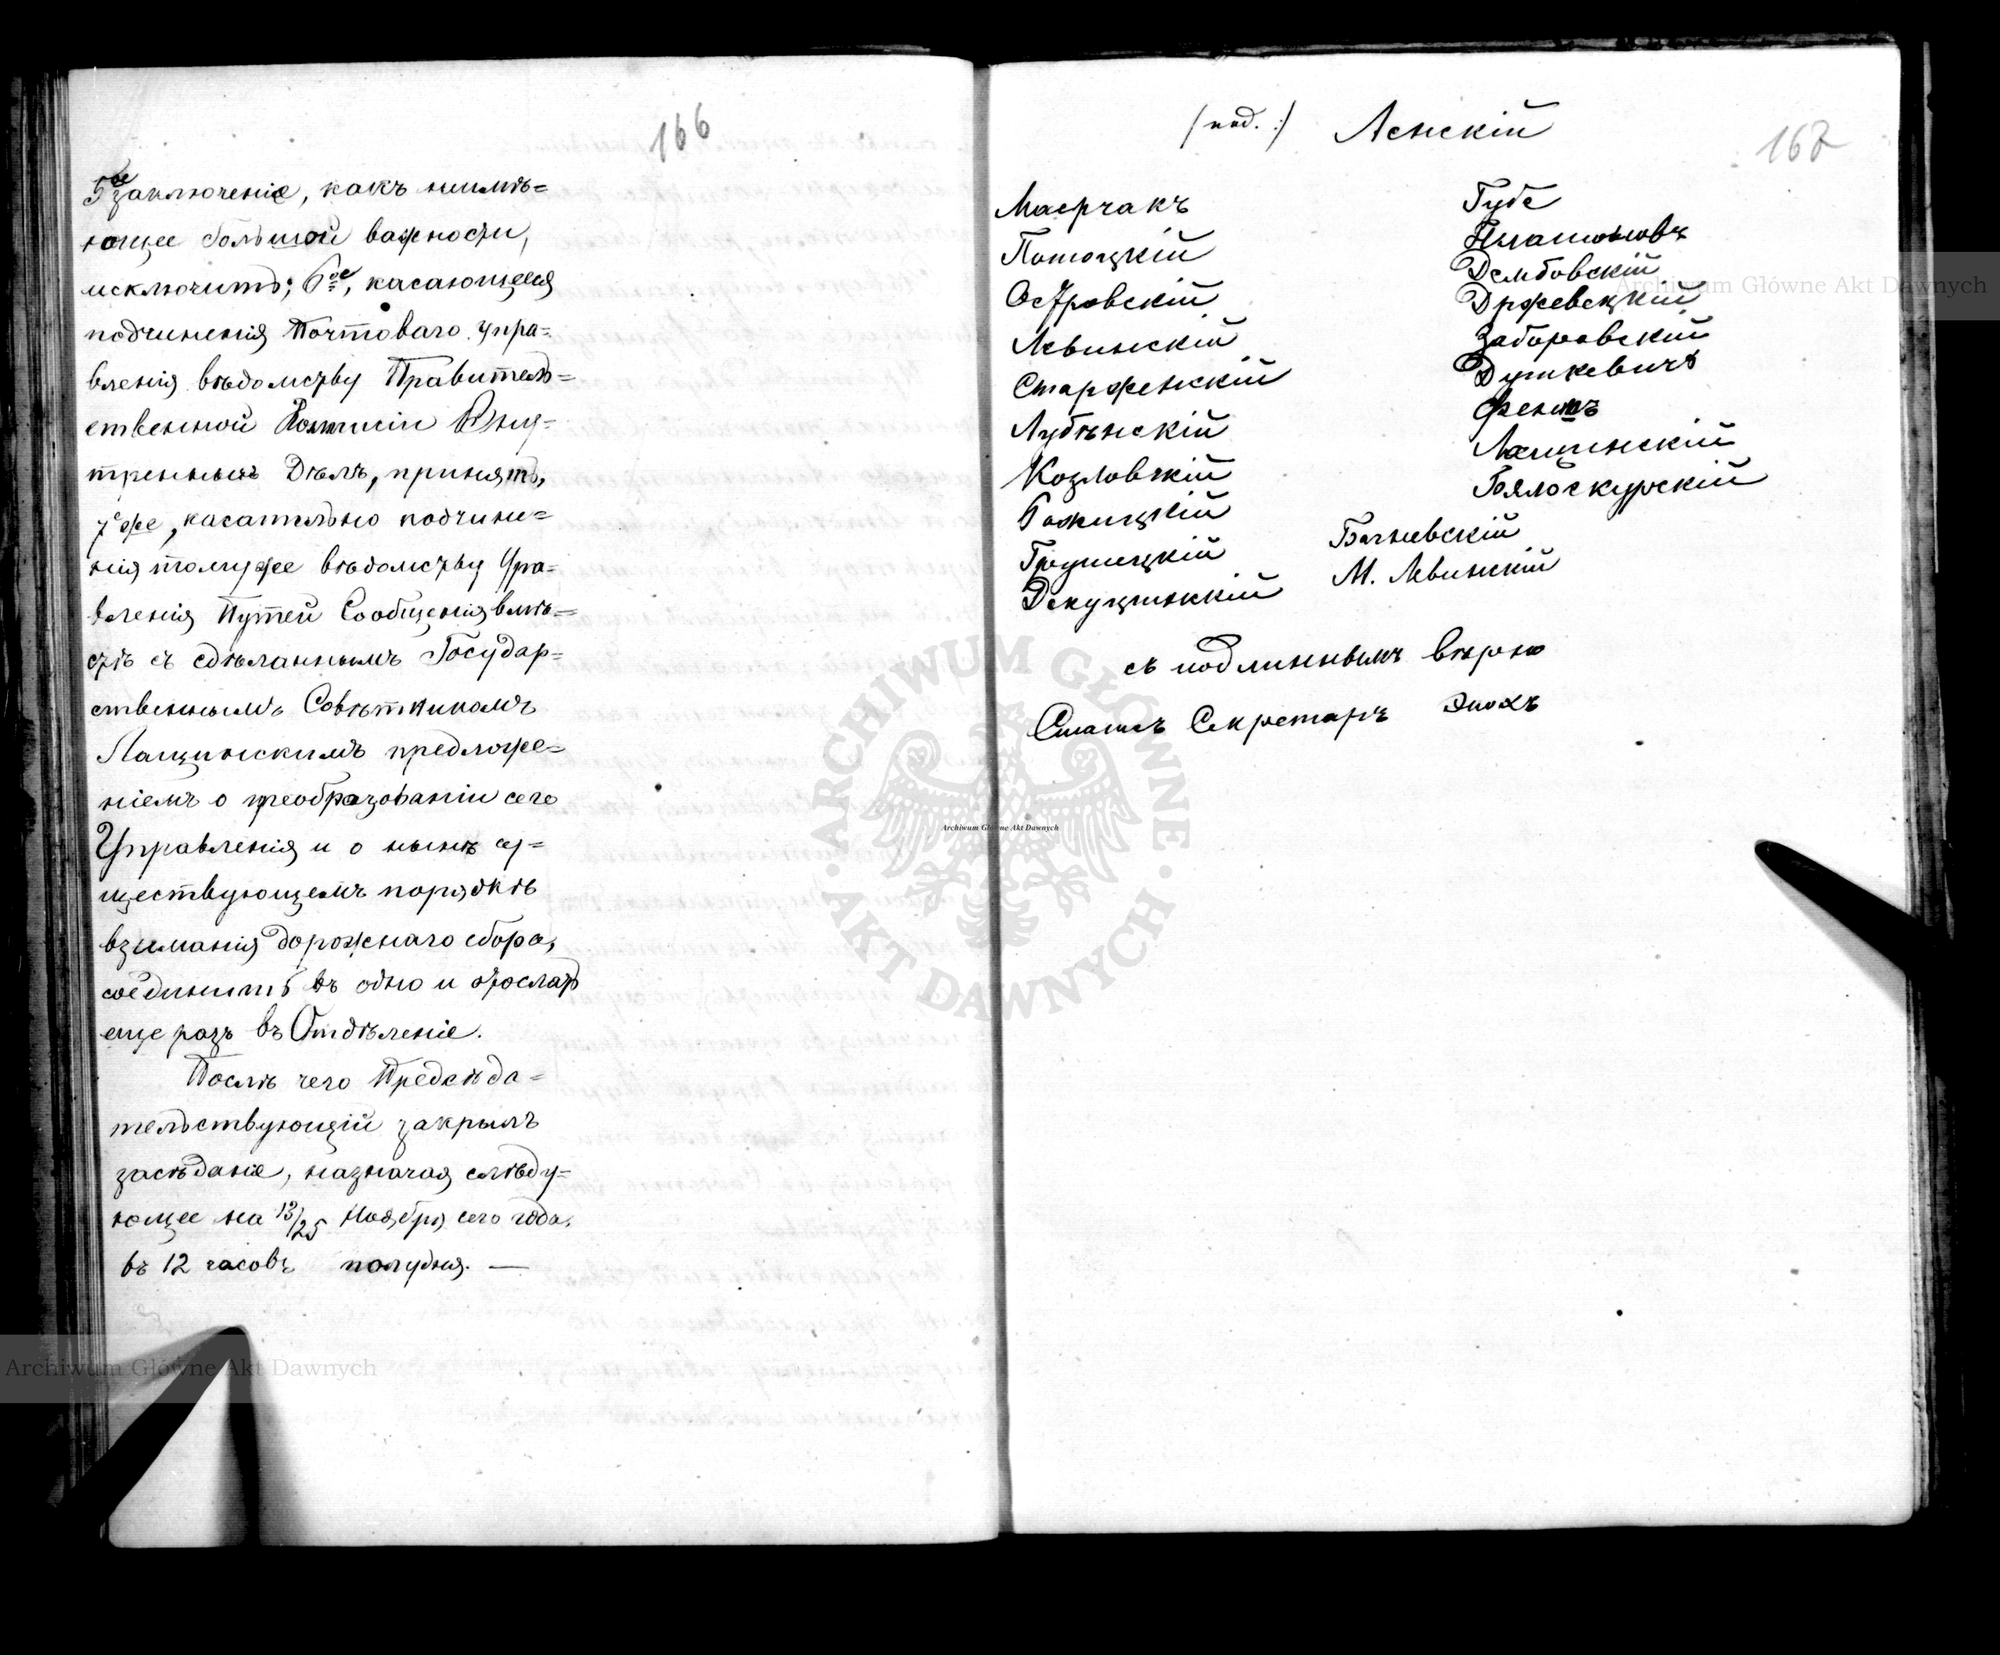 166
5ое заключеніе, какъ неимѣ=
ющее большой важности,
исключить; 6ое, касающееся
подчиненія Почтоваго упра=
вленія вѣдомству Правитель=
ственной Коммисіи Вну=
треннихъ Дѣлъ, принять,
7е же, касательно подчине=
нія томуже вѣдомству Упра=
вленія Путей Сообщенія вмѣ=
стѣ съ сдѣланнымъ Государ=
ственнымъ Совѣтникомъ
Лащинскимъ предложе=
ніемъ о преобразованіи сего
Управленія и о нынѣ су=
ществующемъ порядкѣ
взиманія дорожнаго сбора,
соединить въ одно и отослать
еще разъ въ Отдѣленіе.
Послѣ чего Предсѣда=
тельствующій закрылъ
засѣданіе, назначая слѣду=
ющее на 13/25 Ноября сего года,
въ 12 часовъ полудня. —
167
/под. :/ Ленскій
Маерчакъ
Потоцкій
Островскій
Левинскій
Старженскій
Лубѣнскій
Козловскій
Грушецкій
Декуцинскій
Губе
Платоновъ
Дембовскій
Држевецкій
Заборовскій
Дуткевичъ
Феншъ
Лащинскій
Бялоскурскій
Бачневскій
М. Левинскій
съ подлиннымъ вѣрно
Статсъ Секретарь Энохъ
ARCHIWUM GŁÓWNE AKT DAWNYCH
Archiwum Główne Akt Dawnych
Archiwum Główne Akt Dawnych
Archiwum Główne Akt Dawnych